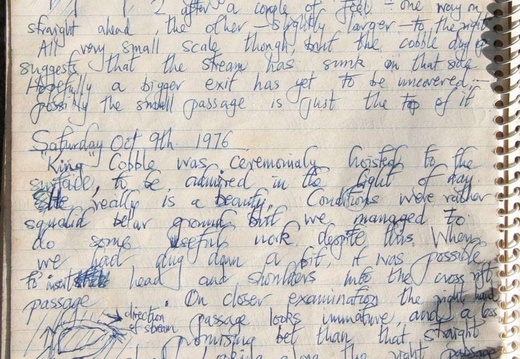 after a couple of feet - one way on
straight ahead, the other - slightly larger - to the right
All very small scale though, but the cobble dog
suggests that the stream has sunk on that side.
Hopefully a bigger exit has yet to be uncovered -
possibly the small passage is just the top of it
Saturday Oct 9th 1976
"King" Cobble was ceremonialy hoisted to the
surface, to be admired in the light of day.
He really is a beauty. Conditions were rather
squalid below ground but we managed to
do some useful work despite this. When
we had dug down a bit, it was possible
to insert head and shoulders into the cross rift
passage. On closer examination the right hand
direction of stream
passage looks immature, and a less
promising bet than that straight
looking along the right passage